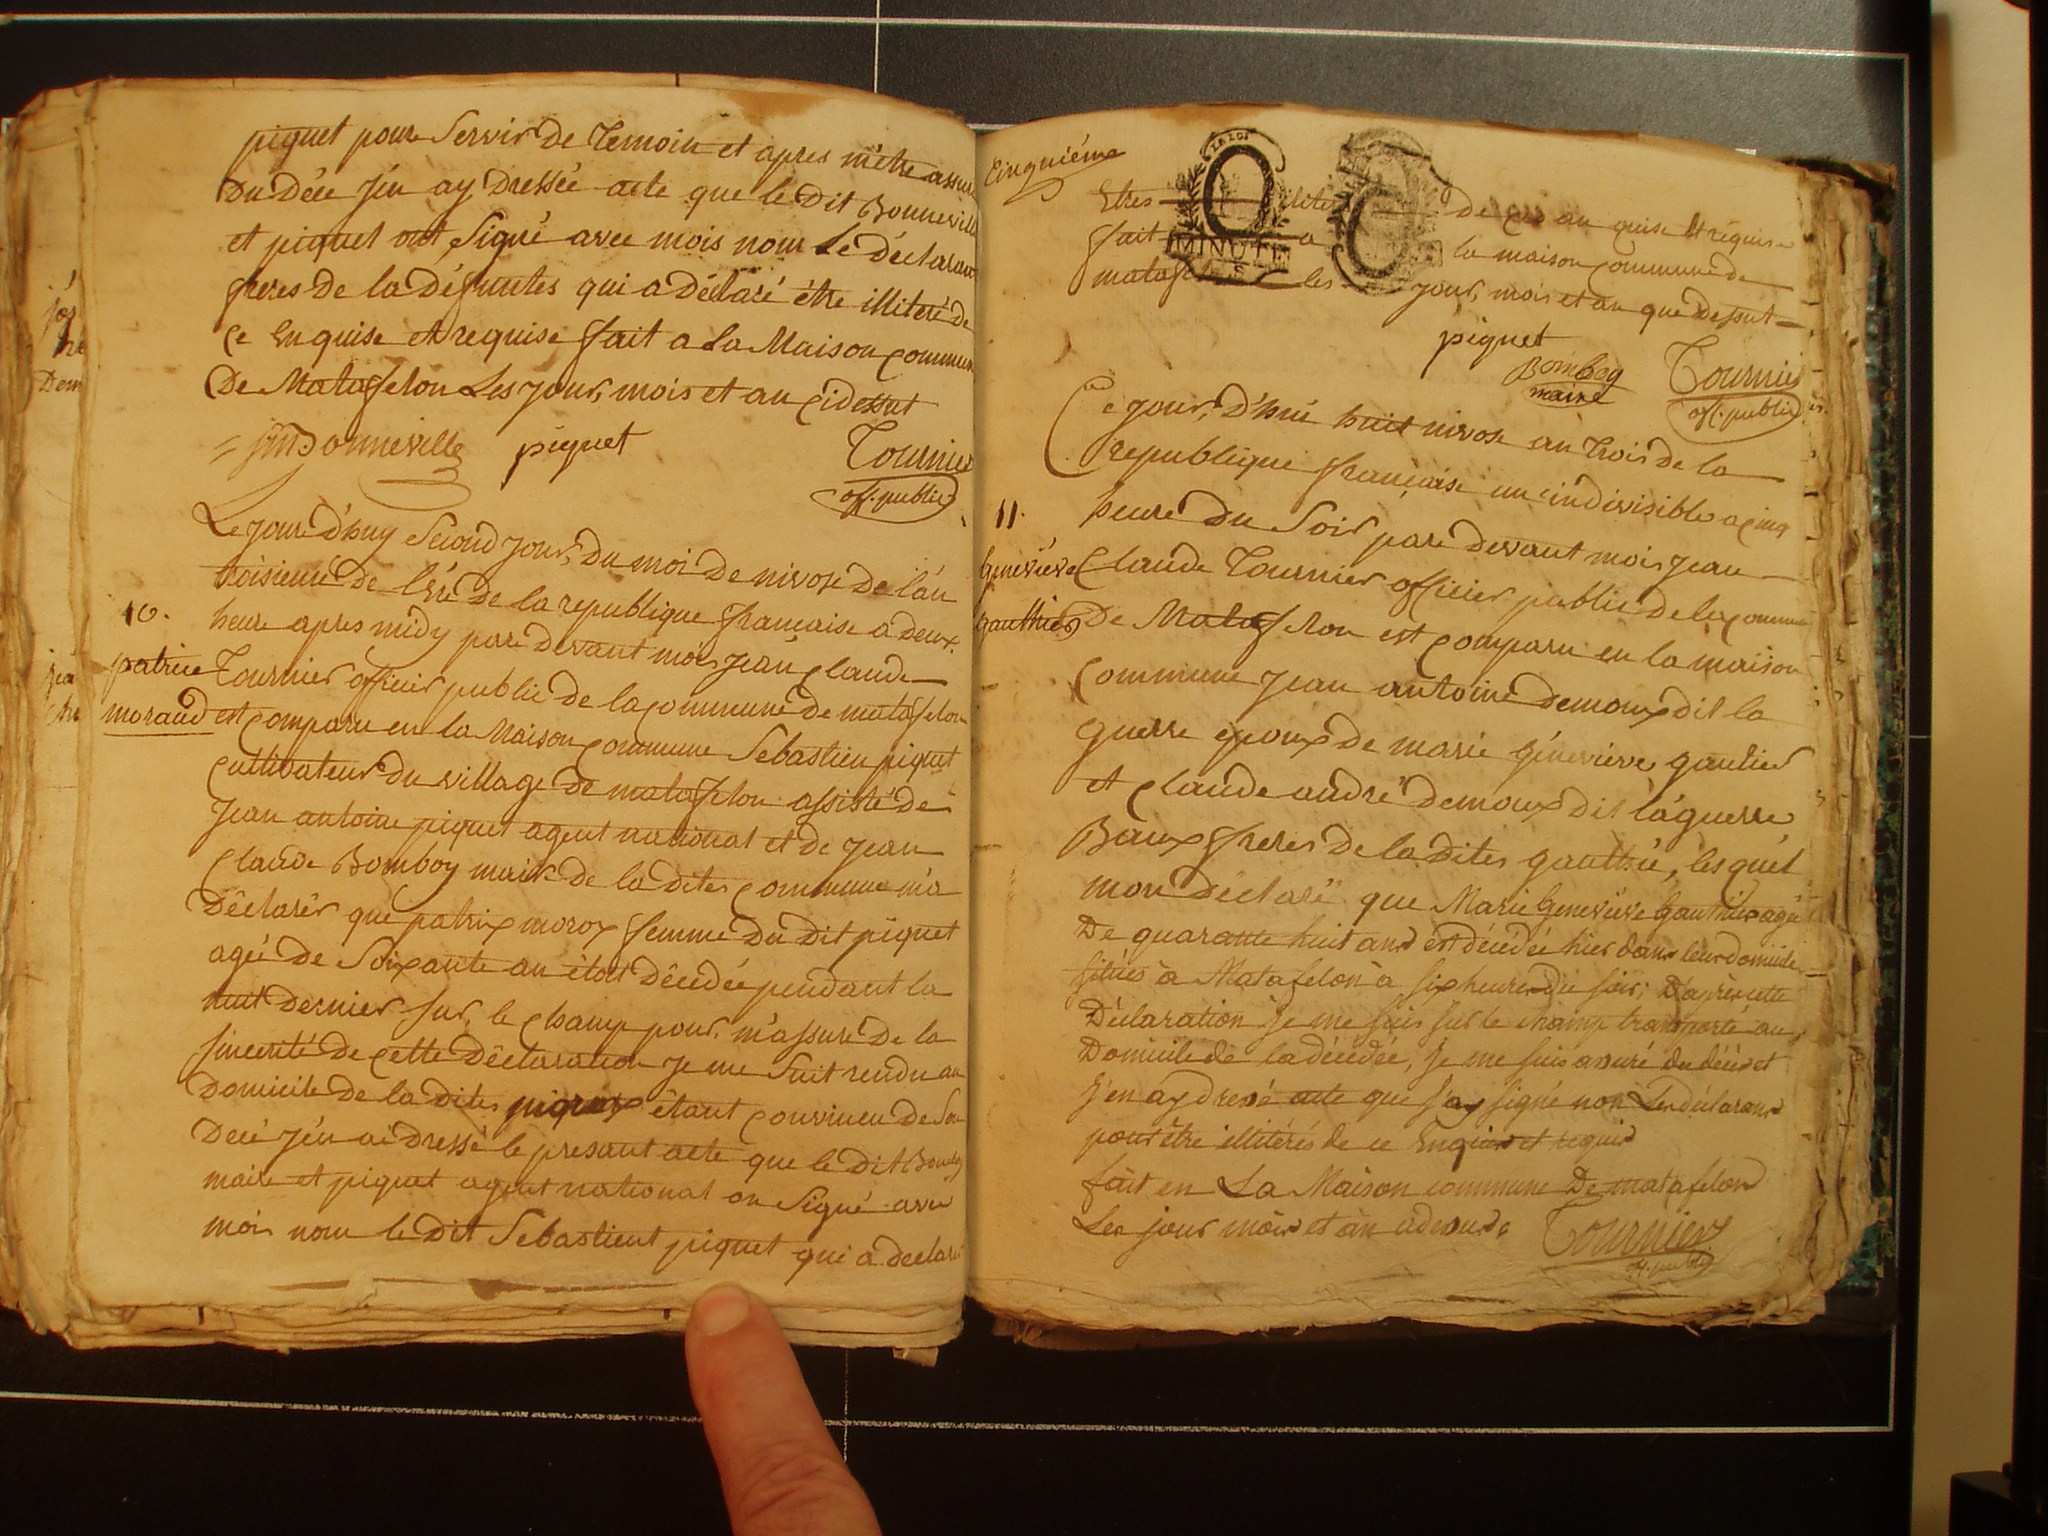 piquet pour Servir de Temoin et apres mêtre assuré
du Déce j'én ay Dressée acte que le dit Bonneville
et piquet ont Signé avec mois nom Le déclarant
freres de la défuntes qui a déclaré être illiteré de
Ce Enquise et requise fait a La Maison Commune
De Matafelon Les jour, mois et an Cidessut
piquet
Tournier
off. public
Le jour d'huy Second jour, Du moi De nivose De l'an
troisieme de l'ére de la republique française a deux
heure apres midy pare Devant mois jean Claude
10.
patrice
moraud
Tournier officier public de la commune de matafelon
est Comparu en la Maison Commune Sebastien piquet
Cultivateur du village de matafelon assisté de
jean antoine piquet agent national et de jean
Claude Bomboy maire de la dites Commune m'a
Déclarér que patrix morox femme du dit piquet
ageé de Soixante an étoit Décedée pendant la
nuit dernier sur, le Champ pour, m'assuré de la
sincerité de Cette Déclaration je me Suit rendu au
Domicile de la dites étant Convincu de Son
Decé j'én ai dressé le presant acte que le dit Bomboy
maire et piquet agent national on Signé avec
mois nom le dit Sebastient piquet qui a declaré
Cinquiéme
Etres de Ces an quise Et requise
fait a la maison Commune de
MINUTE
les jour, mois et an que dessut
piquet
Bomboy
maire
Tournier
off. public
Ce jour, d'hui huit nivose an Trois de la
republique française un indivisibles a Cinq
heure du Soir pare devant mois jean
11.
Geneviéve
gauthier
Claude Tournier officier public de la Commune
De Matafelon est Comparu en la maison
Commune jean antoine demoux dit la
guerre epoux de marie géneviéve gautier
et Claude andré demoux dit laguerre
Beaux freres de la dites gauthié, lesquét
mon déclaré que Marie Geneviéve Gauthier agée
De quarante huit ans est décédée hier dans leur domicile
situés à Matafelon à six heures du soir; D'après cette
Déclaration je me suis sur le champ transporté au
Domicile de la décédée, je me suis assuré du décès et
j'en ay dressé acte que j'ay signé non Les déclarans
pour être illitérés de ce Enquis et requis
fait en La Maison commune De matafelon
Les jour mois et an adessus
Tournier
off. public